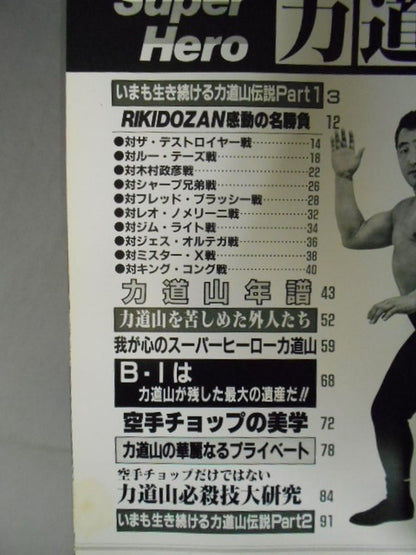 Super
Hero
力道
いまも生き続ける力道山伝説Part1 3
RIKIDOZAN感動の名勝負 12
●対ザ・デストロイヤー戦 14
●対ルー・テーズ戦 18
●対木村政彦戦 22
●対シャープ兄弟戦 26
●対フレッド・ブラッシー戦 28
●対レオ・ノメリーニ戦 32
●対ジム・ライト戦 34
●対ジェス・オルテガ戦 36
●対ミスター・X戦 38
●対キング・コング戦 40
力道山年譜 43
力道山を苦しめた外人たち 52
我が心のスーパーヒーロー力道山 59
B・Iは
力道山が残した最大の遺産だ!! 68
空手チョップの美学 72
力道山の華麗なるプライベート 78
空手チョップだけではない
力道山必殺技大研究 84
いまも生き続ける力道山伝説Part2 91